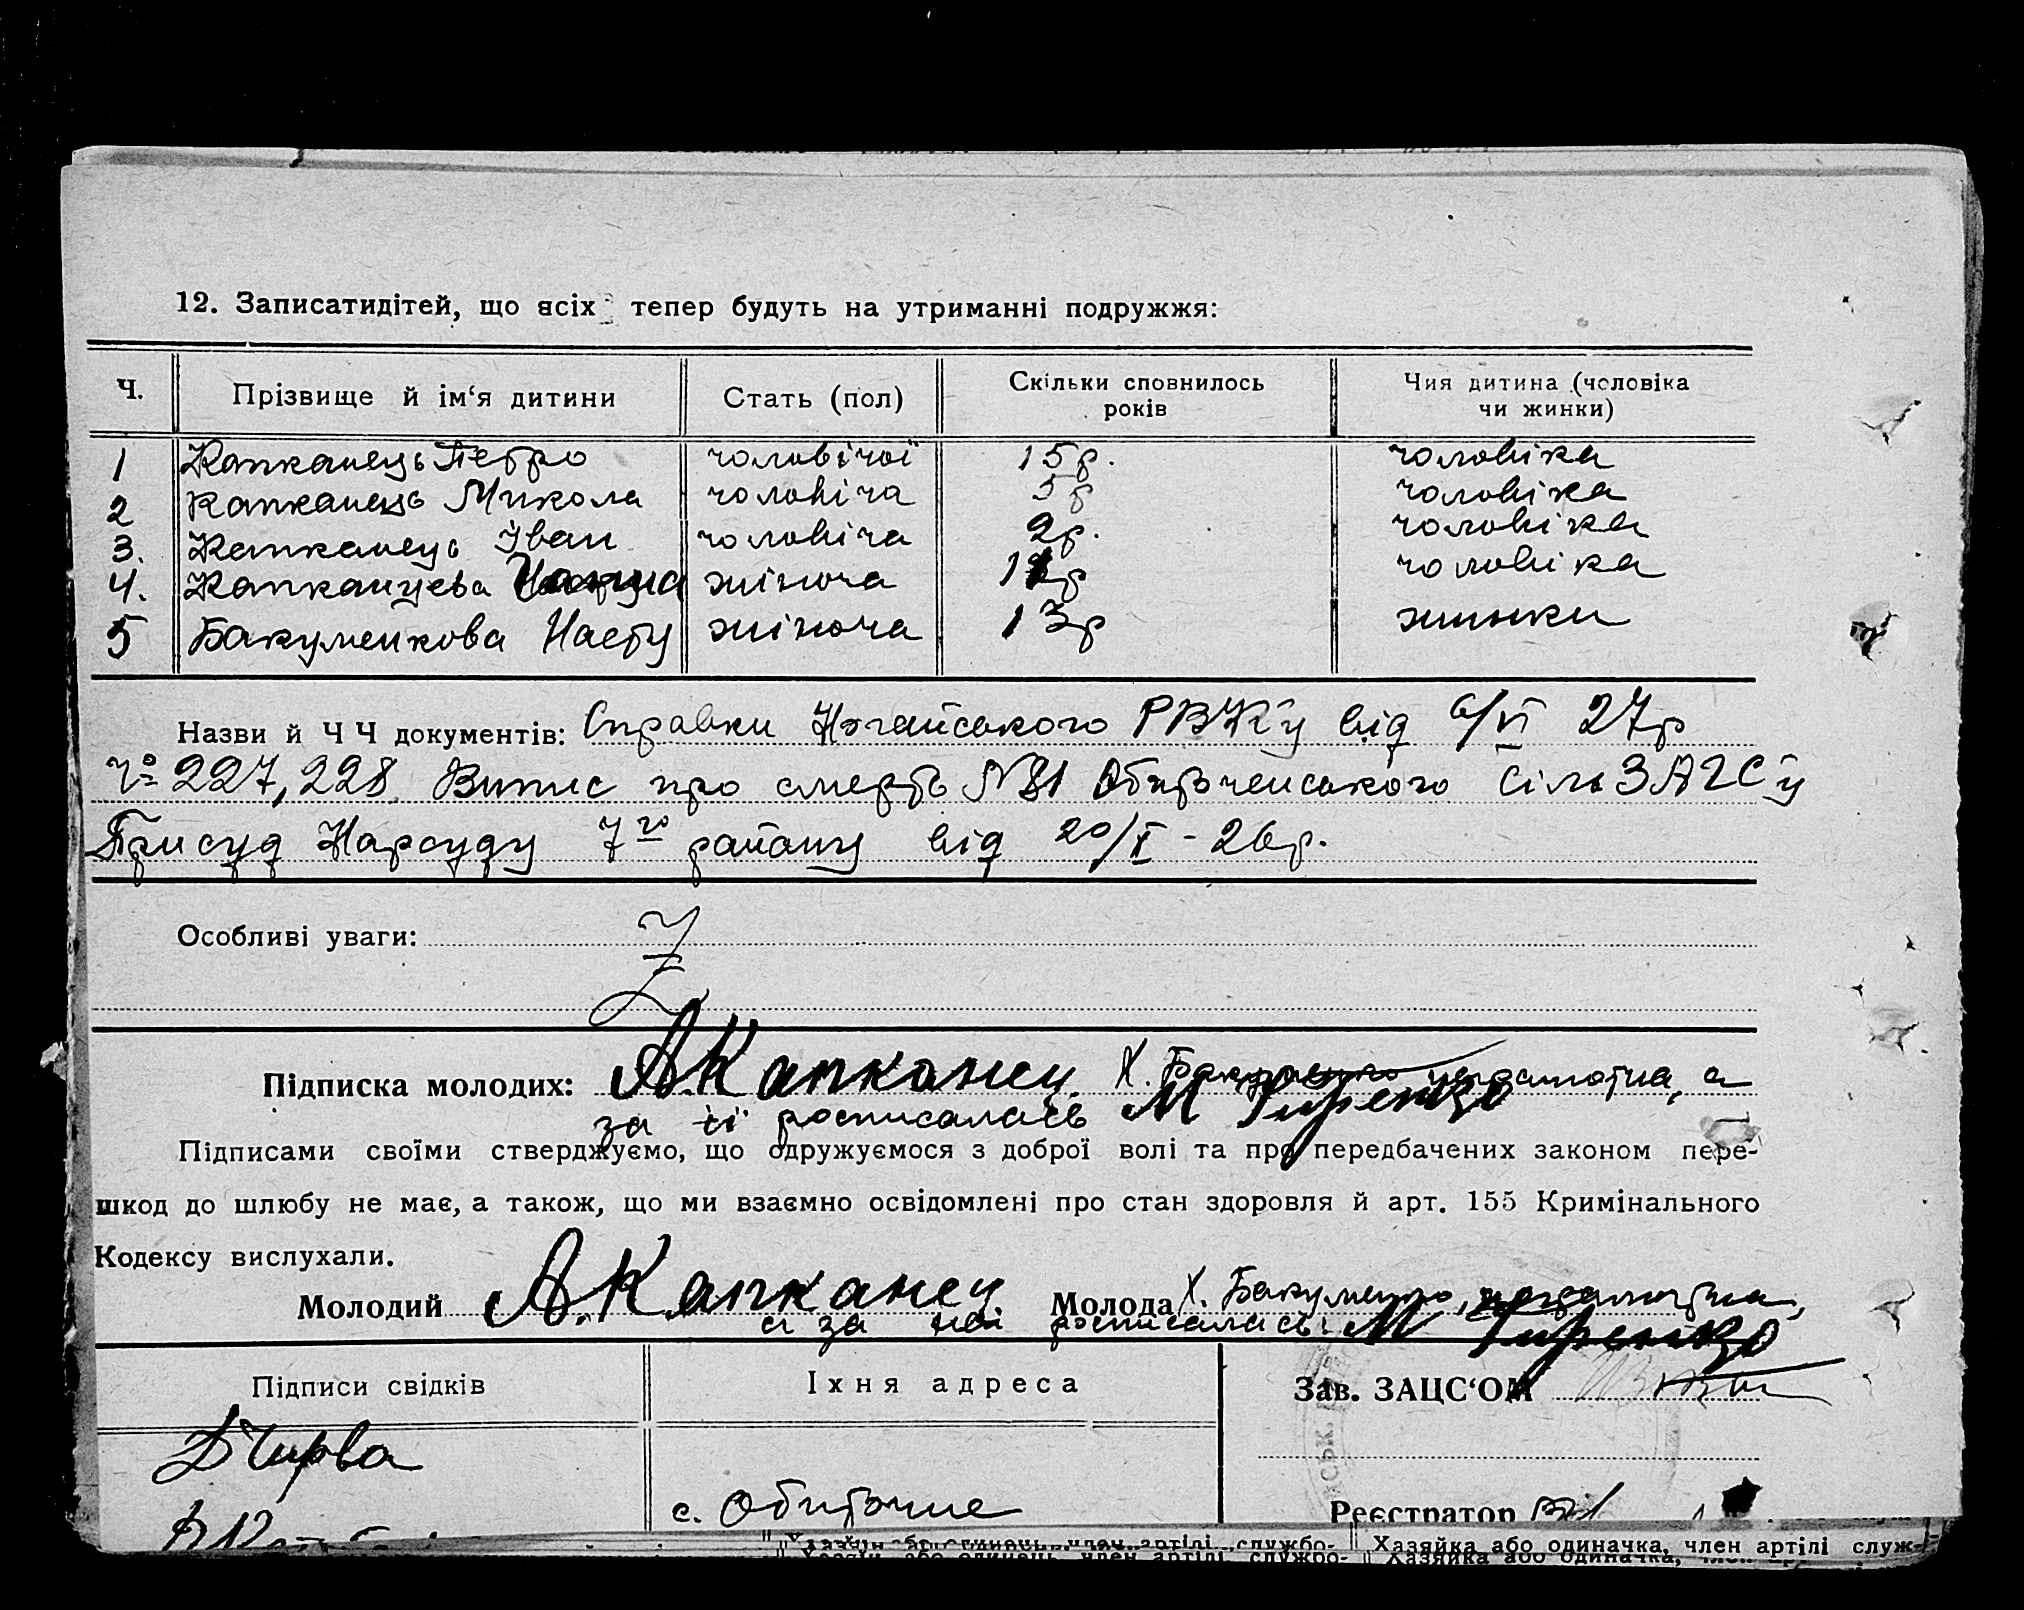 12. Записатидітей, що всіх тепер будуть на утриманні подружжя:
Ч. Прізвище й ім‘я дитини Стать (пол) Скільки сповнилось років Чия дитина (чоловіка чи жинки)
1 Капканець Петро чоловічої 15р. чоловіка
2 Капканець Микола чоловіча 5р чоловіка
3. Капканець Іван чоловіча 2р. чоловіка
4. Капканцева жіноча чоловіка
5 Бакуменкова Насту жіноча 13р жинки
Назви й Ч Ч документів: Справки Ногайського РВК'у від 6/VI 27р
№ 227, 228 Випис про смерть №81 Обиточенського сільЗАГС'у
Присуд Нарсуду 7го району від 20/X - 26р.
Особливі уваги:
Підписка молодих: А.Капканец Х. Бакуменко неграмотна, а
за її росписалась М Гиренко
Підписами своїми стверджуємо, що одружуємося з доброї волі та про передбачених законом пере-
шкод до шлюбу не має, а також, що ми взаємно освідомлені про стан здоровля й арт. 155 Кримінального
Кодексу вислухали.
Молодий А.Капканец. Молода Х. Бакуменко, неграмотна,
а за неї росписалась: М Гиренко
Підписи свідків Їхня адреса Зав. ЗАЦС‘ОМ
Д Чирва
с. Обиточне
Реєстратор
Хазяїн або одинець, член артілі службо- Хазяйка або одиначка, член артілі служ-